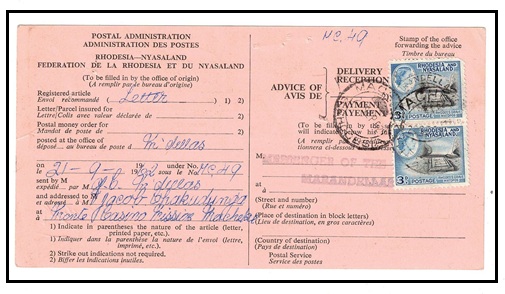 POSTAL ADMINISTRATION
ADMINISTRATION DES POSTES
RHODESIA—NYASALAND
FEDERATION DE LA RHODESIA ET DU NYASALAND
(To be filled in by the office of origin)
(A remplir par le bureau d'origine)
Registered article
Envoi recommandé Letter ) 1) 2)
Letter/Parcel insured for
Lettre/Colis avec valeur déclarée de ) 2)
Postal money order for
Mandat de poste de ) 2)
posted at the office of
déposé au bureau de poste à M'dellas
on 21-9 1962 under No. Mc49
le 19 sous le No
sent by M
expédié par M
and addressed to M Jacob
et adressé à M
at
à Monte Casino Mission Macheke
1) Indicate in parentheses the nature of the article (letter, printed paper, etc.).
1) Indiquer dans la parenthèse la nature de l'envoi (lettre, imprimé, etc.)
2) Strike out indications not required.
2) Biffer les indications inutiles.
Mc.49
Stamp of the office
forwarding the advice
Timbre du bureau
ADVICE OF
AVIS DE
DELIVERY
RECEPTION
PAYMENT
PAYEMENT
(To be
will indicate below his
(A remplir
tionnera ci-dessous
RHODESIA AND
NYASALAND
3D
POSTAGE
RHODESIA AND
NYASALAND
3D
POSTAGE
MESSENGER OF
MARANDELLAS
at
à
(Street and number)
(Rue et numéro)
(Place of destination in block letters)
(Lieu de destination, en gros caractères)
(Country of destination)
(Pays de destination)
Postal Service
Service des postes